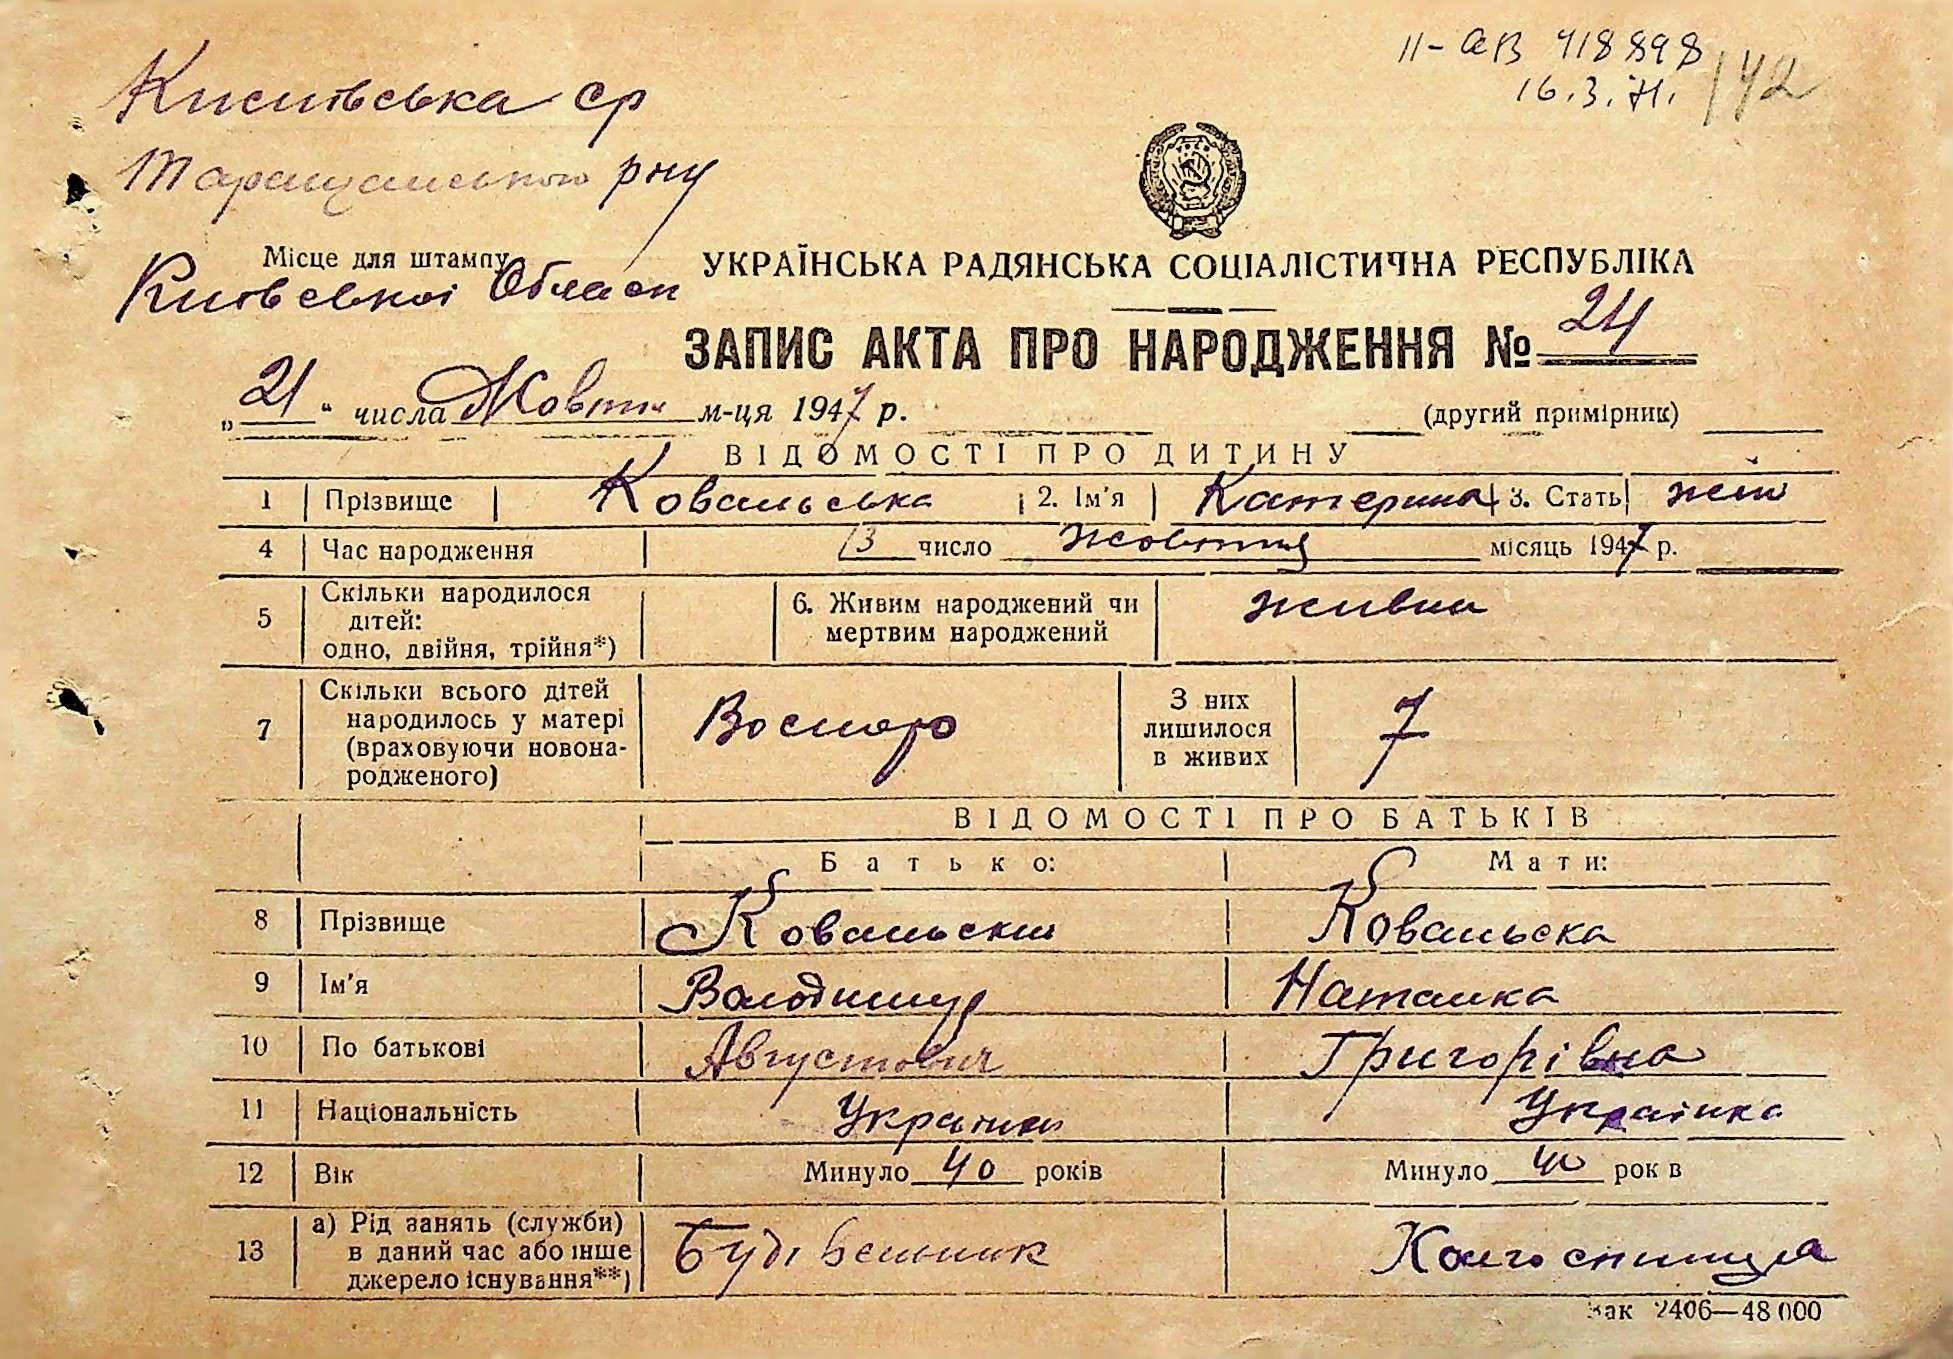 II-АВ 418898
16.3.71.
142
ср
Таращанського р-ну
Місце для штампу
Київської Області
УКРАЇНСЬКА РАДЯНСЬКА СОЦІАЛІСТИЧНА РЕСПУБЛІКА
ЗАПИС АКТА ПРО НАРОДЖЕННЯ № 24
„21“ числа Жовтн м-ця 1947 р. (другий примірник)
ВІДОМОСТІ ПРО ДИТИНУ
1 Прізвище Ковальська 2. Ім'я Катерина 3. Стать жін
4 Час народження 13 число жовтня місяць 1947 р.
5 Скільки народилося дітей: одно, двійня, трійня*) 6. Живим народжений чи мертвим народжений живим
7 Скільки всього дітей народилось у матері (враховуючи новонародженого) Восьмеро З них лишилося в живих 7
ВІДОМОСТІ ПРО БАТЬКІВ
Батько: Мати:
8 Прізвище Ковальский Ковальска
9 Ім'я Володимир Наталка
10 По батькові Августович Григорівна
11 Національність Українец Українка
12 Вік Минуло 40 років Минуло 40 рок в
13 а) Рід занять (служби) в даний час або інше джерело існування**) Будівельник Колгоспниця
Зак 2406—48 000